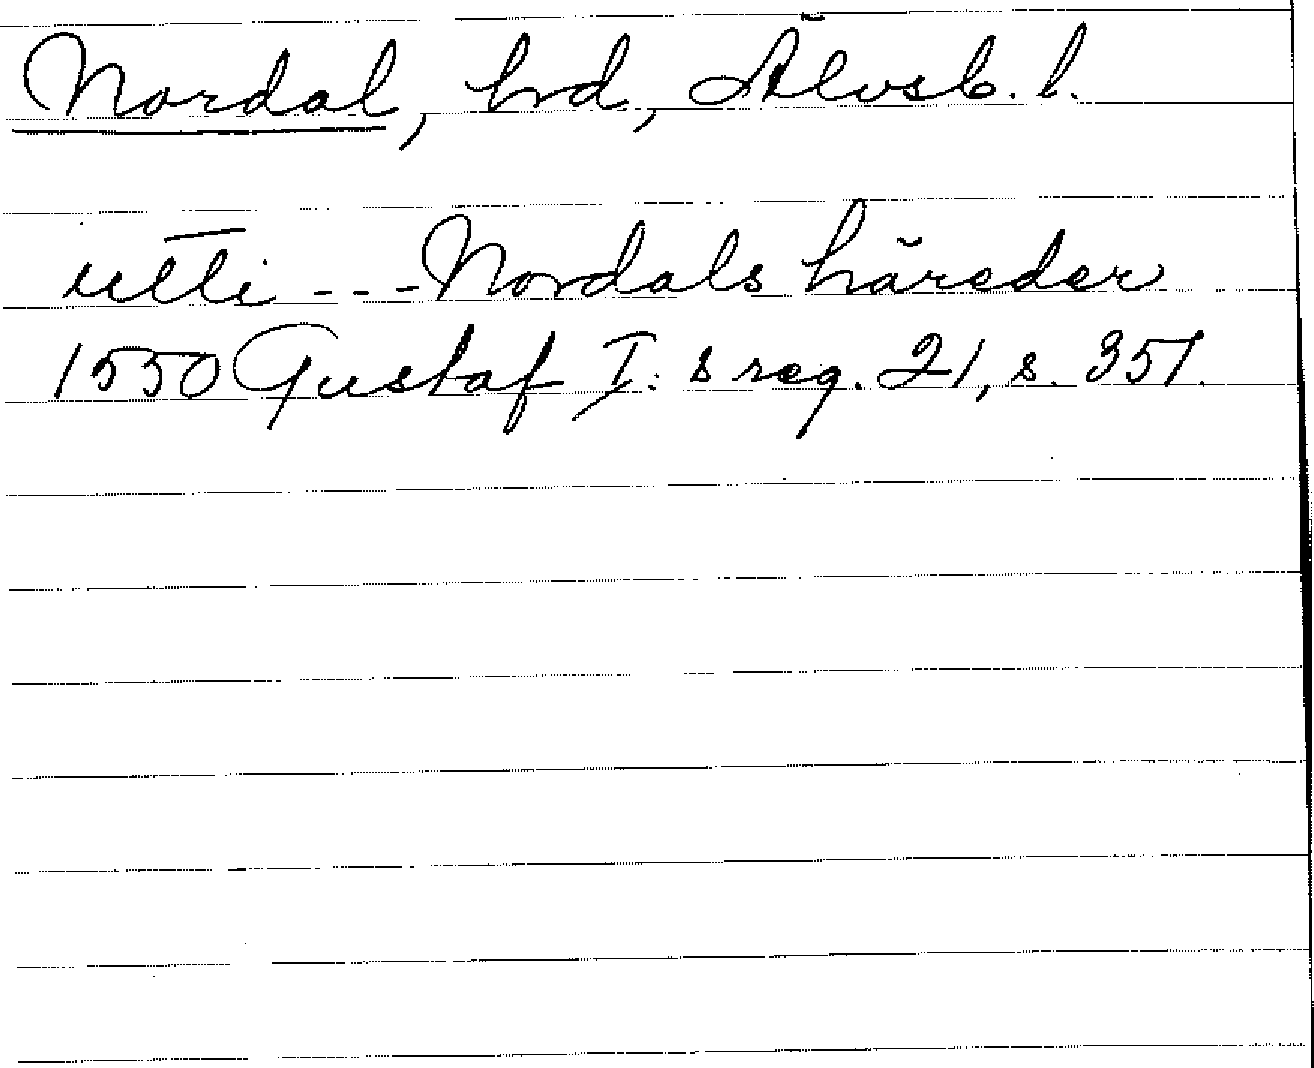 Nordal, hrd, Älvsb. l.
utti --- Nordals häreder
1550 Gustaf I:s reg. 21, s. 351.